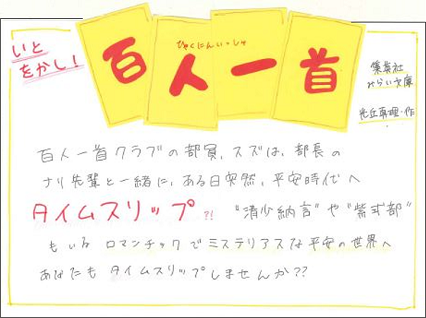 いと
をかし!
ひゃくにんいっしゅ
百人一首
集英社
みらい文庫
光丘真理・作
百人一首クラブの部員、スズは、部長の
ナリ先輩と一緒に、ある日突然、平安時代へ
タイムスリップ?! "清少納言"や"紫式部"
もいる ロマンチックでミステリアスな平安の世界へ
あなたも タイムスリップしませんか??